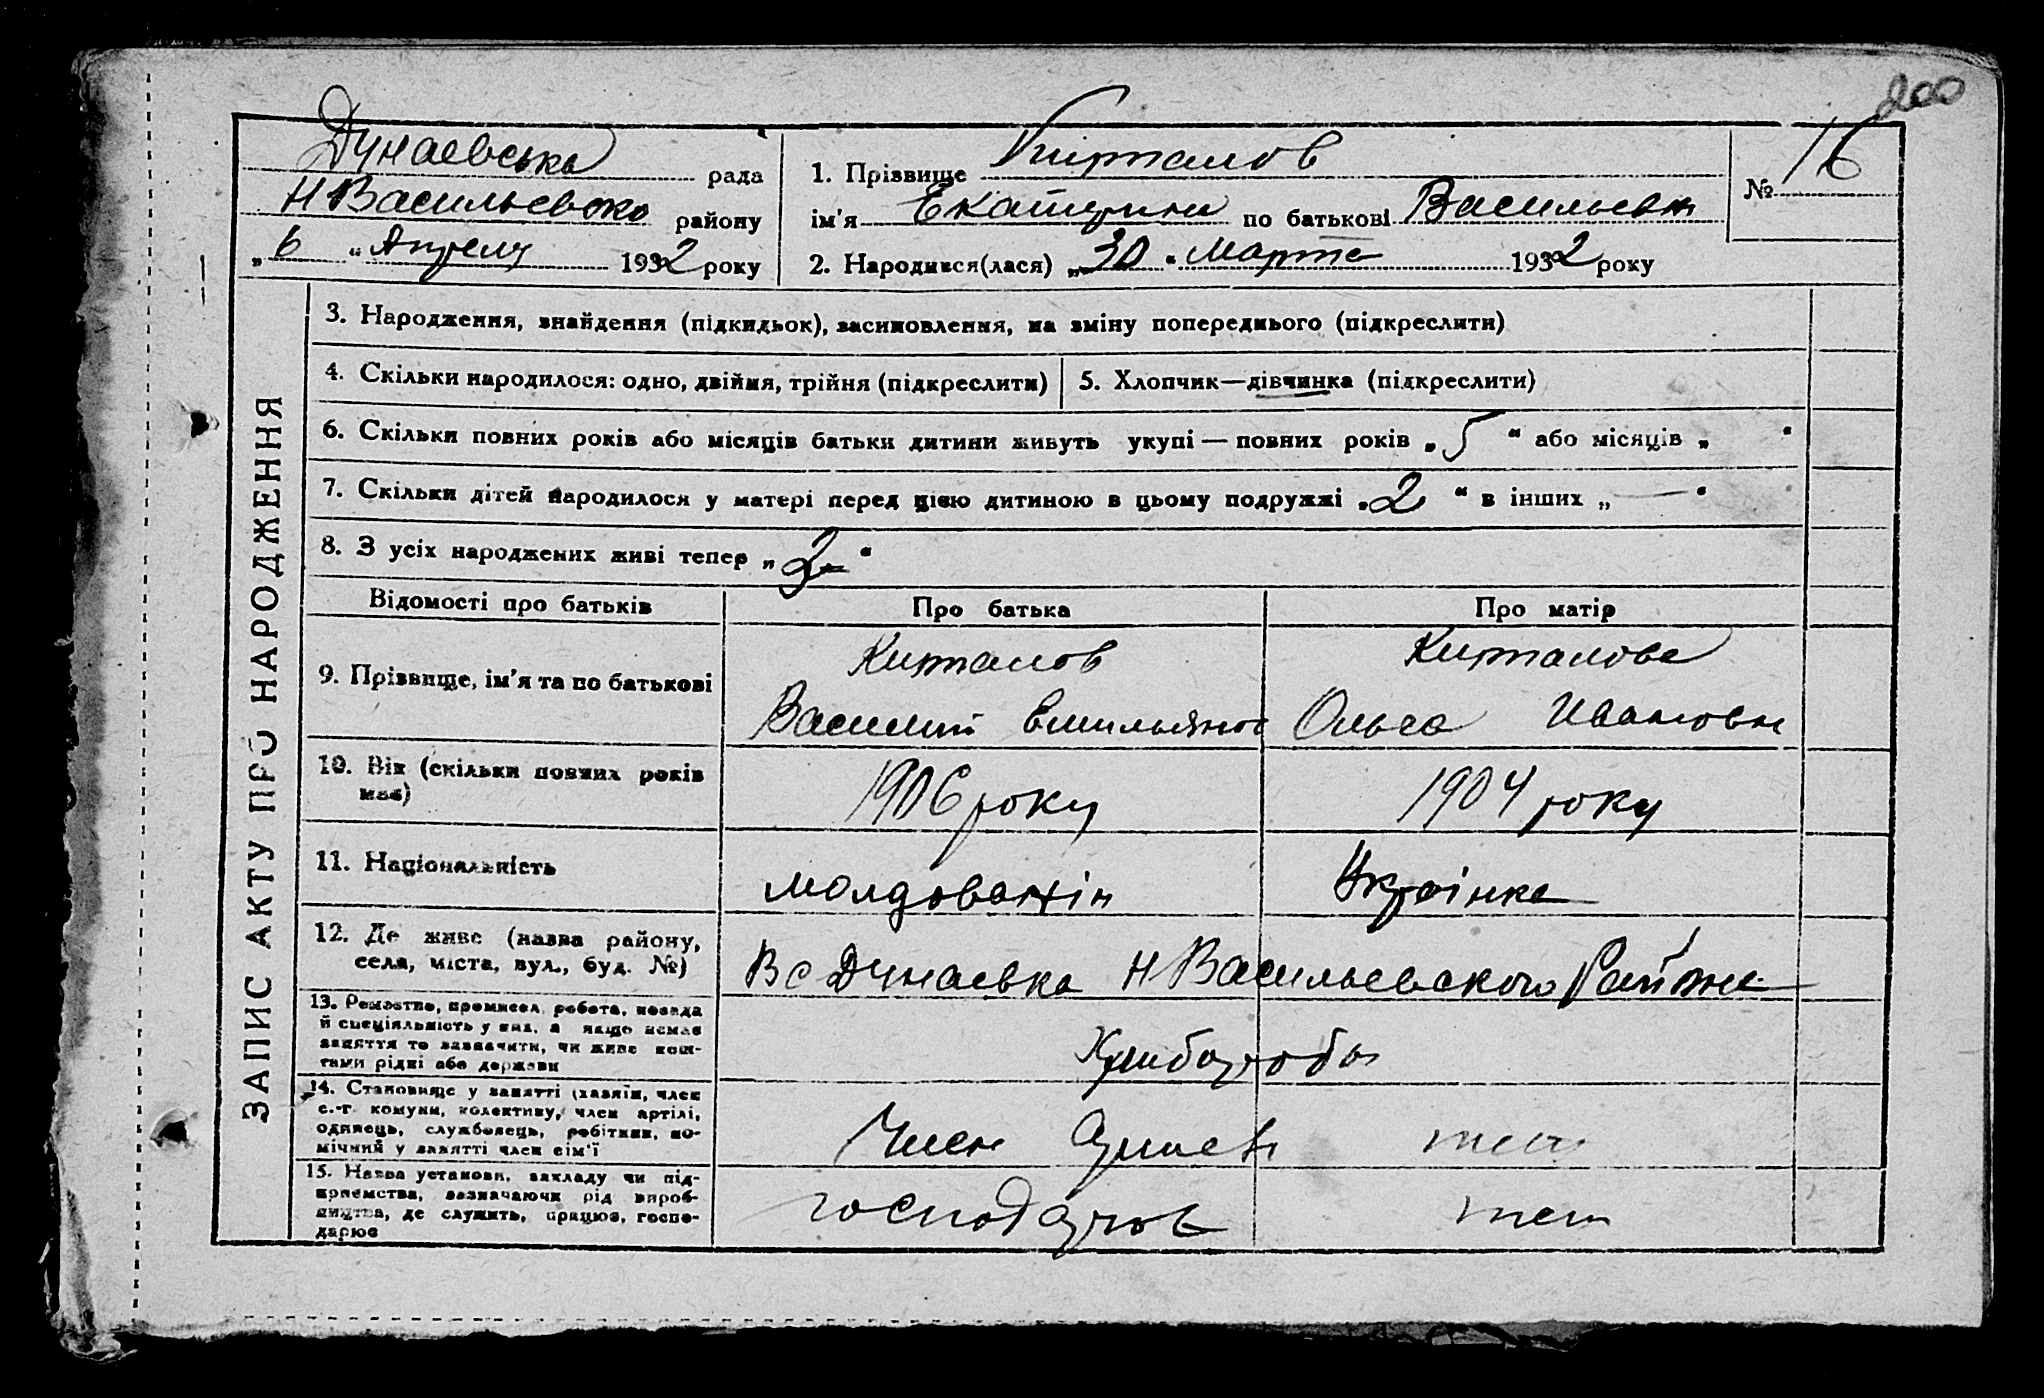 200
Дунаевська рада
Н Васильевско району
„ 6 “ Апреля 1932 року
1. Прізвище Киртанов
ім'я Екатерина по батькові Васильевн
2. Народився(лася) „ 30 “ Марта 1932 року
№ 16
ЗАПИС АКТУ ПРО НАРОДЖЕННЯ
3. Народження, знайдення (підкидьок), засиновлення, на зміну попереднього (підкреслити)
4. Скільки народилося: одно, двійня, трійня (підкреслити)
5. Хлопчик—дівчинка (підкреслити)
6. Скільки повних років або місяців батьки дитини живуть укупі — повних років „ 5 “ або місяців „ “
7. Скільки дітей народилося у матері перед цією дитиною в цьому подружжі „ 2 “ в інших „ — “
8. З усіх народжених живі тепер „ “
Відомості про батьків
Про батька
Про матір
9. Прізвище, ім'я та по батькові
Киртанов
Василий Емильянов
Киртанова
Ольга Ивановн
10. Вік (скільки повних років
має)
1906 року
1904 року
11. Національність
молдованін
Українка
12. Де живе (назва району,
села, міста, вул., буд. №)
В с Дунаевка Н Васильевского Района
13. Ремество, промисел, робота, посада
й спеціяльність у них, а якщо немає
заняття то зазначити, чи живе кош-
тами рідні або держави
Хлибороби
14. Становище у занятті (хазяїн, член
с.-г. комуни, колективу, член артілі,
одинець, службовець, робітник, по-
мічний у занятті член сім'ї
Член
тоже
15. Назва установи, закладу чи під-
приємства, зазначаючи рід вироб-
ництва, де служить, працює, госпо-
дарює
тоже